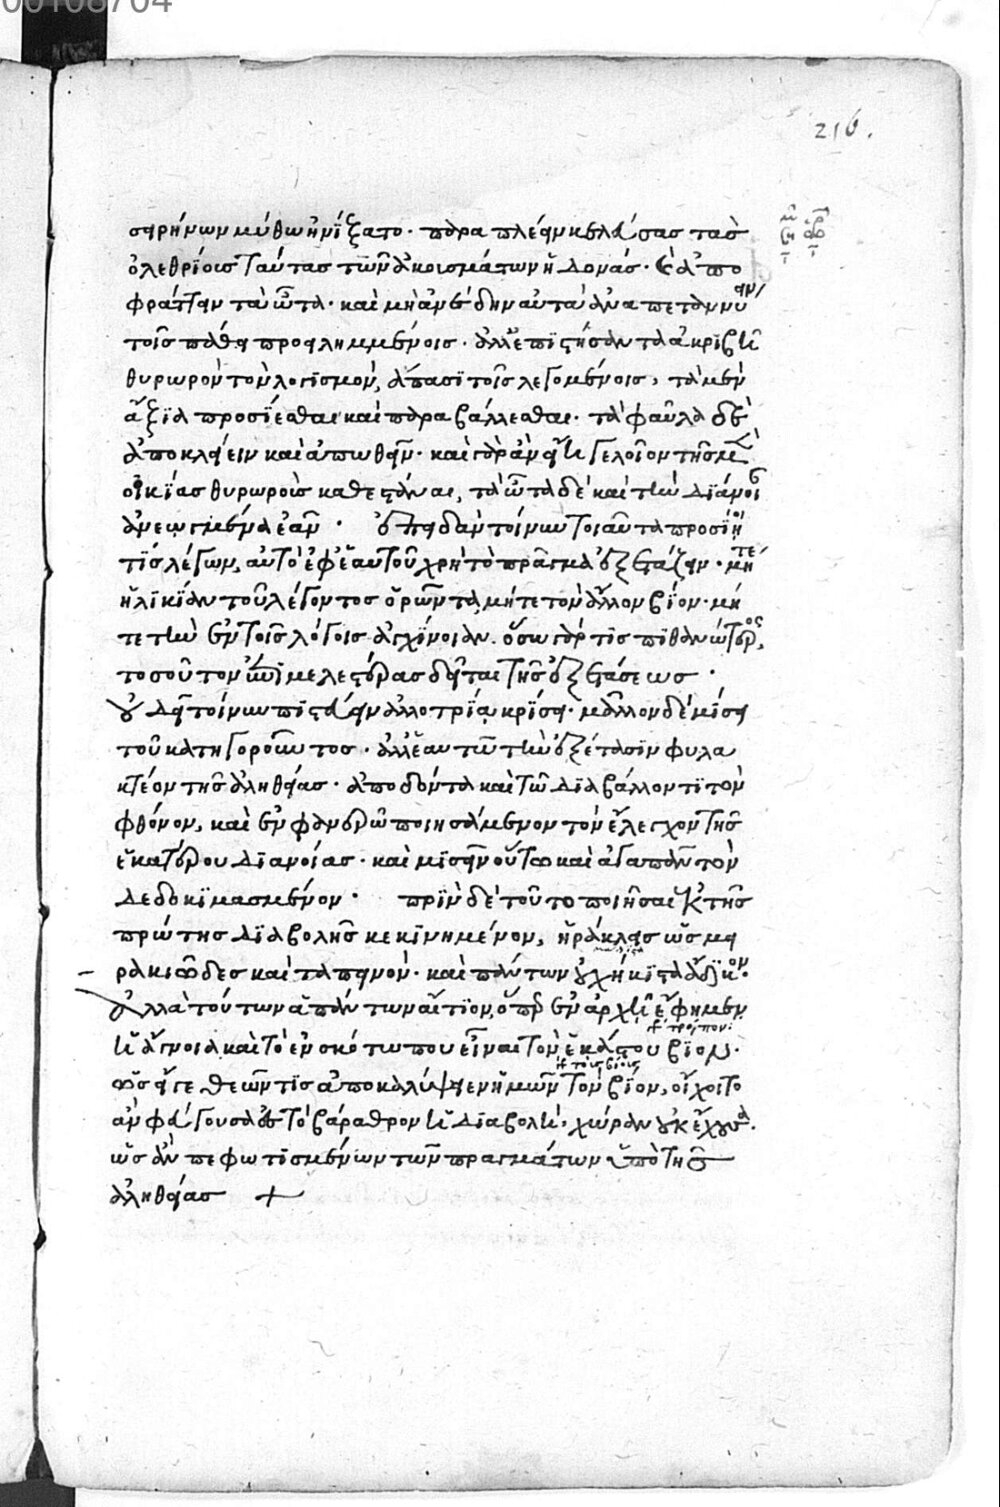 216.
σειρήνων μύθω ἠνίξατο· παραπλέειν κελεύσας τὰς
ὀλεθρίοις ταύτας τῶν ἀκουσμάτων ἡδονάς· καὶ ἀπο
φράττειν τὰ ὦτα· καὶ μὴ ἀνέδην αὐτὰ ἀναπεταννύειν
τοῖς πάθει προειλημμένοις· ἀλλ' ἐπιστήσαντα ἀκριβῆ
θυρωρὸν τὸν λογισμὸν, ἅπασι τοῖς λεγομένοις, τὰ μὲν
ἄξια προσίεσθαι καὶ παραβάλλεσθαι· τὰ φαῦλα δὲ
ἀποκλείειν καὶ ἀπωθεῖν· καὶ γὰρ ἂν εἴη γελοῖον τῆς μὲν
οἰκίας θυρωροὺς καθεστάναι, τὰ ὦτα δὲ καὶ τὴν διάνοι
ἀνεωγμένα ἐᾶν· ἐπειδὰν τοίνυν τοιαῦτα προσίῃ
τις λέγων, αὐτὸ ἐφ' ἑαυτοῦ χρὴ τὸ πρᾶγμα ἐξετάζειν· μήτε
ἡλικίαν τοῦ λέγοντος ὁρῶντα, μήτε τὸν ἄλλον βίον· μή
τε τὴν ἐν τοῖς λόγοις ἀγχίνοιαν. ὅσω γάρ τις πιθανώτερος,
τοσοῦτον ἐπιμελεστέρας δεῖται τῆς ἐξετάσεως·
οὐ δεῖ τοίνυν πιστεύειν ἀλλοτρία κρίσει· μᾶλλον δὲ μίσει
τοῦ κατηγοροῦντος· ἀλλ' ἑαυτῶ τὴν ἐξέτασιν φυλα
κτέον τῆς ἀληθείας· ἀποδόντα καὶ τῶ διαβάλλοντι τὸν
φθόνον, καὶ ἐν φανερῶ ποιησάμενον τὸν ἔλεγχον τῆς
ἑκατέρου διανοίας· καὶ μισεῖν οὕτω καὶ ἀγαπᾶν τὸν
δεδοκιμασμένον· πρὶν δὲ τοῦτο ποιῆσαι ἐκ τῆς
πρώτης διαβολῆς κεκινημένον, ἡράκλεις ὡς μει
ρακιῶδες καὶ ταπεινόν· καὶ πάντων οὐχ ἥκιστα ἄδικον·
Ἀλλὰ τούτων ἁπάντων αἴτιον, ὅπερ ἐν ἀρχῆ ἔφημεν
ἡ ἄγνοια καὶ τὸ ἐν σκότω που εἶναι τὸν ἑκάστου βίον·
ὡς εἴγε θεῶν τις ἀποκαλύψειεν ἡμῶν τὸν βίον, οἴχοιτο
ἂν φεύγουσα ἐς τὸ βάραθρον ἡ διαβολή· χώραν οὐκ ἔχουσα·
ὡς ἂν πεφωτισμένων τῶν πραγμάτων ὑπὸ τῆς
ἀληθείας +